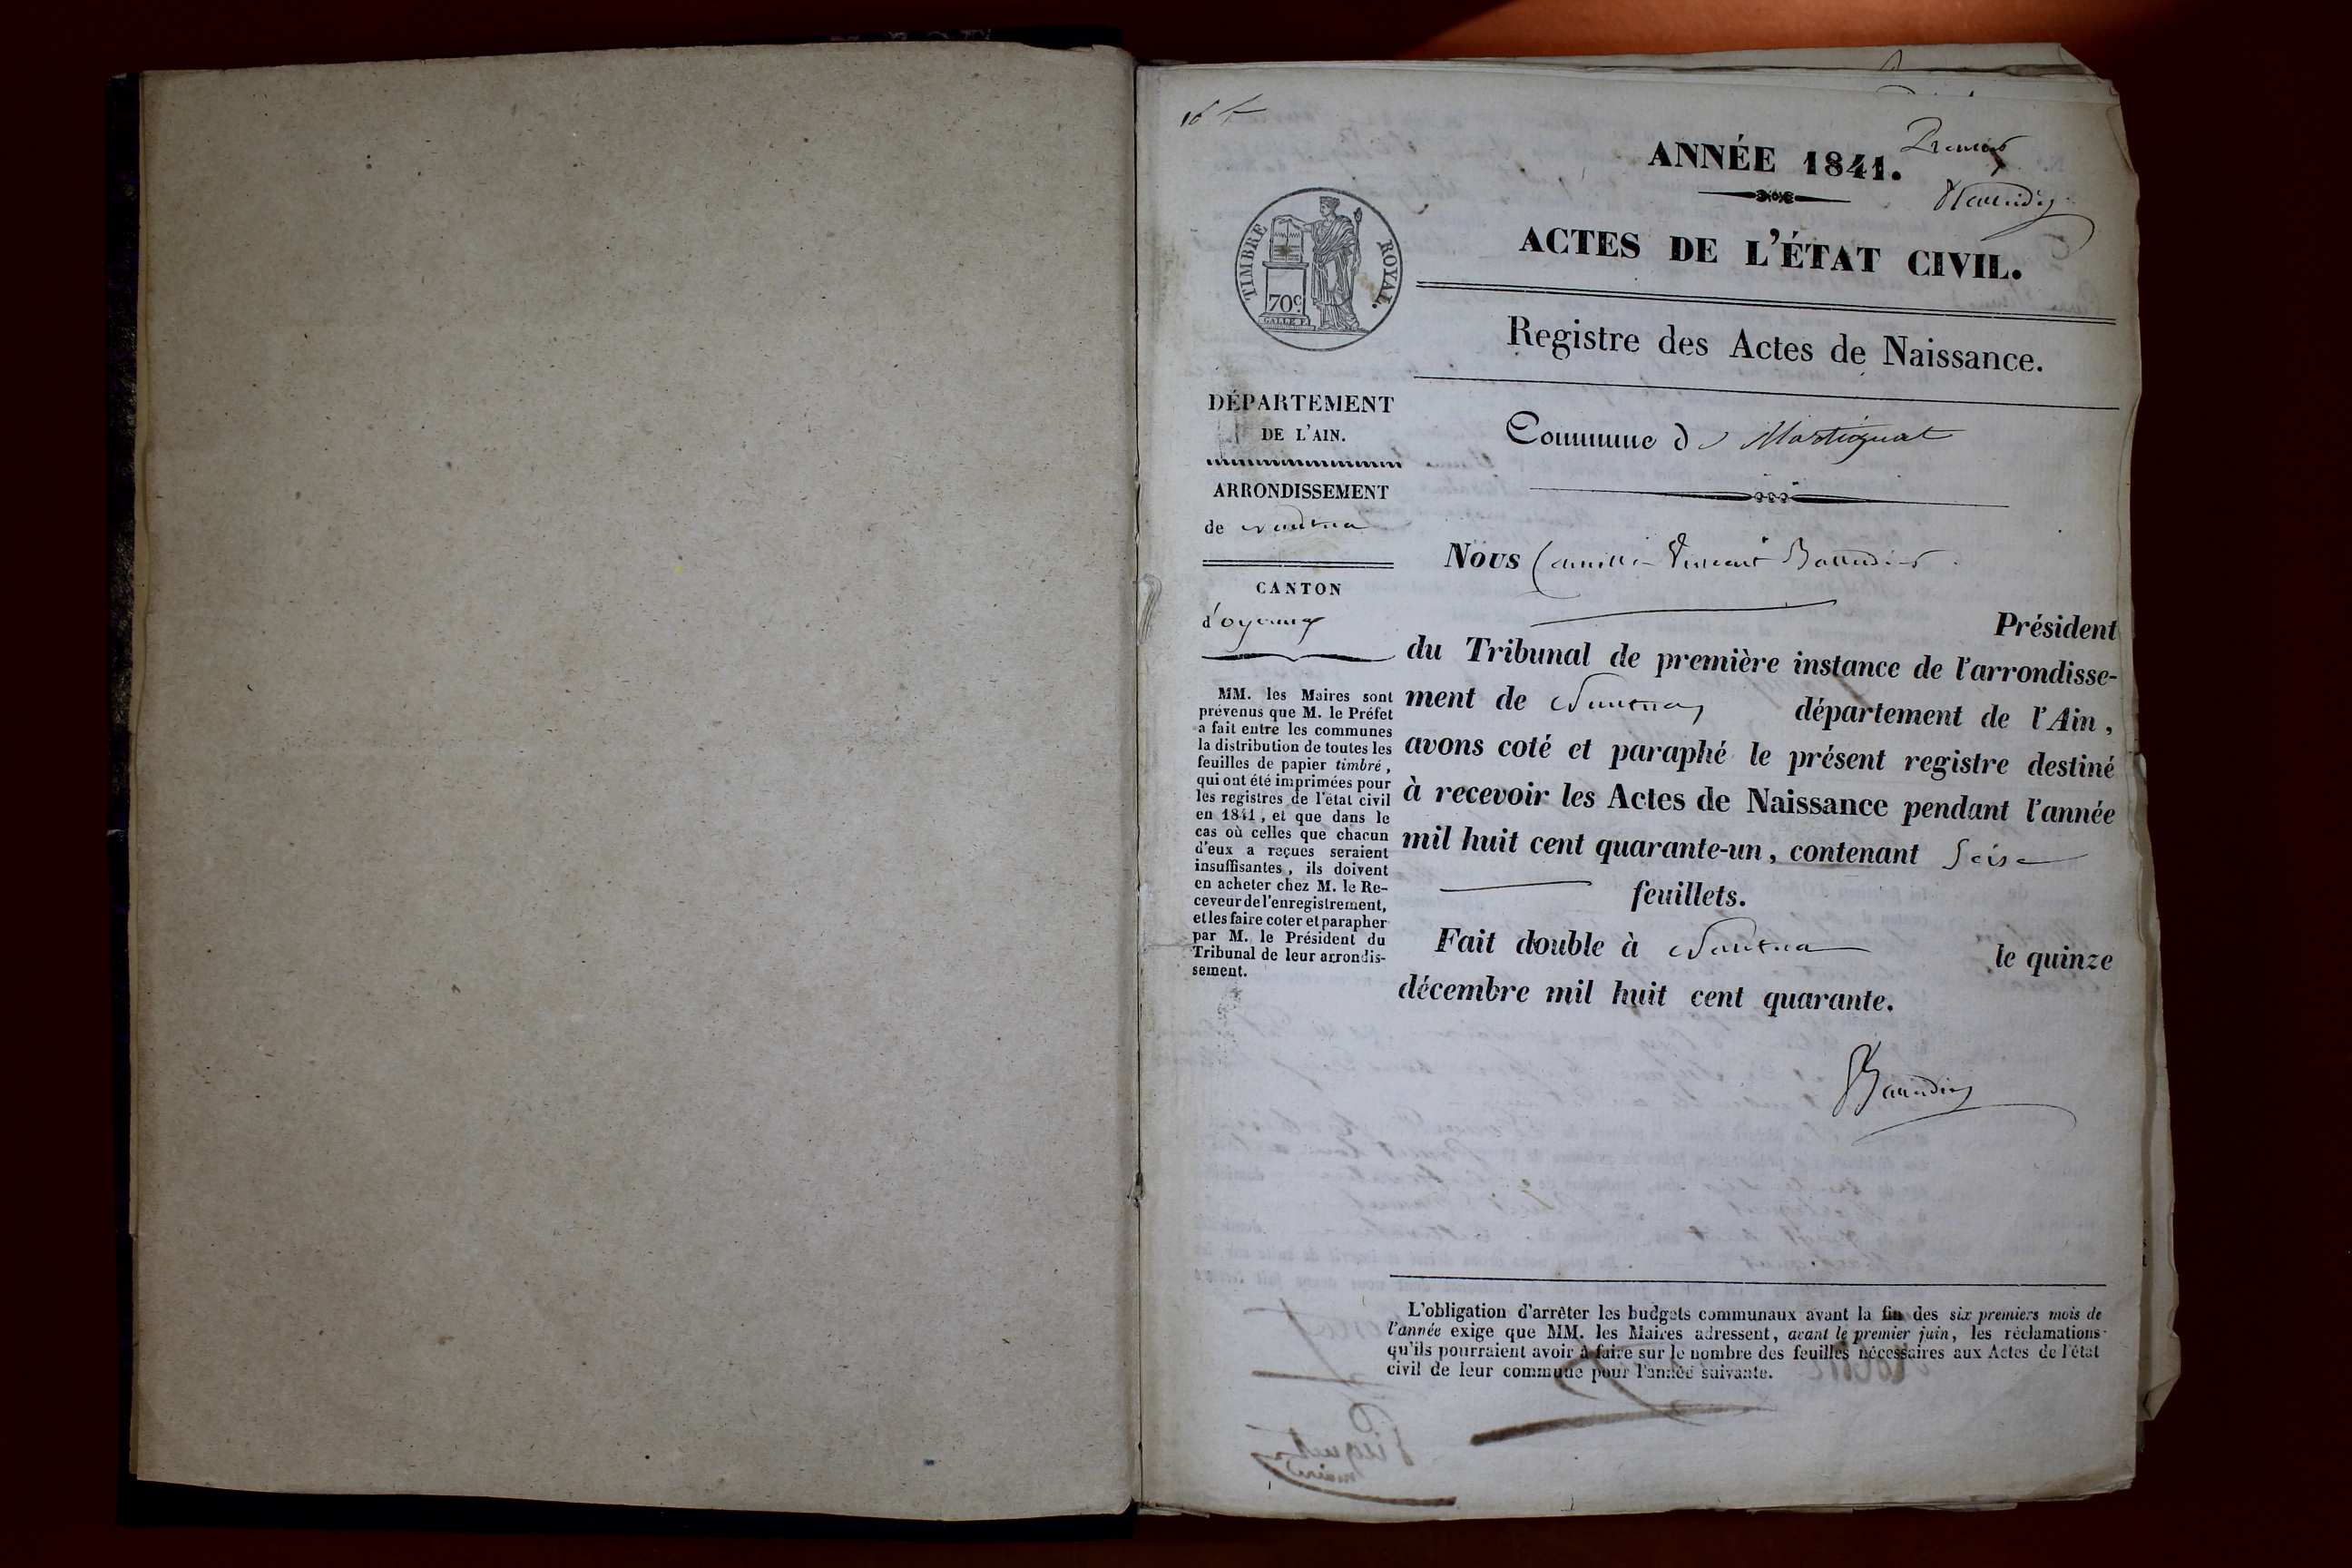 16 f
Premier
ANNÉE 1841.
ACTES DE L'ÉTAT CIVIL.
TIMBRE ROYAL.
70c.
GALLE F.
Registre des Actes de Naissance.
DÉPARTEMENT
DE L'AIN.
ARRONDISSEMENT
de Nantua
CANTON
d'oyonnax
MM. les Maires sont
prévenus que M. le Préfet
a fait entre les communes
la distribution de toutes les
feuilles de papier timbré,
qui ont été imprimées pour
les registres de l'état civil
en 1841, et que dans le
cas où celles que chacun
d'eux a reçues seraient
insuffisantes, ils doivent
en acheter chez M. le Re-
ceveur de l'enregistrement,
et les faire coter et parapher
par M. le Président du
Tribunal de leur arrondis-
sement.
Commune de Martignat
Nous Camille Vincent
Président
du Tribunal de première instance de l'arrondisse-
ment de Nantua département de l'Ain,
avons coté et paraphé le présent registre destiné
à recevoir les Actes de Naissance pendant l'année
mil huit cent quarante-un, contenant Seize
feuillets.
Fait double à Nantua le quinze
décembre mil huit cent quarante.
L'obligation d'arrêter les budgets communaux avant la fin des six premiers mois de
l'année exige que MM. les Maires adressent, avant le premier juin, les réclamations
qu'ils pourraient avoir à faire sur le nombre des feuilles nécessaires aux Actes de l'état
civil de leur commune pour l'année suivante.